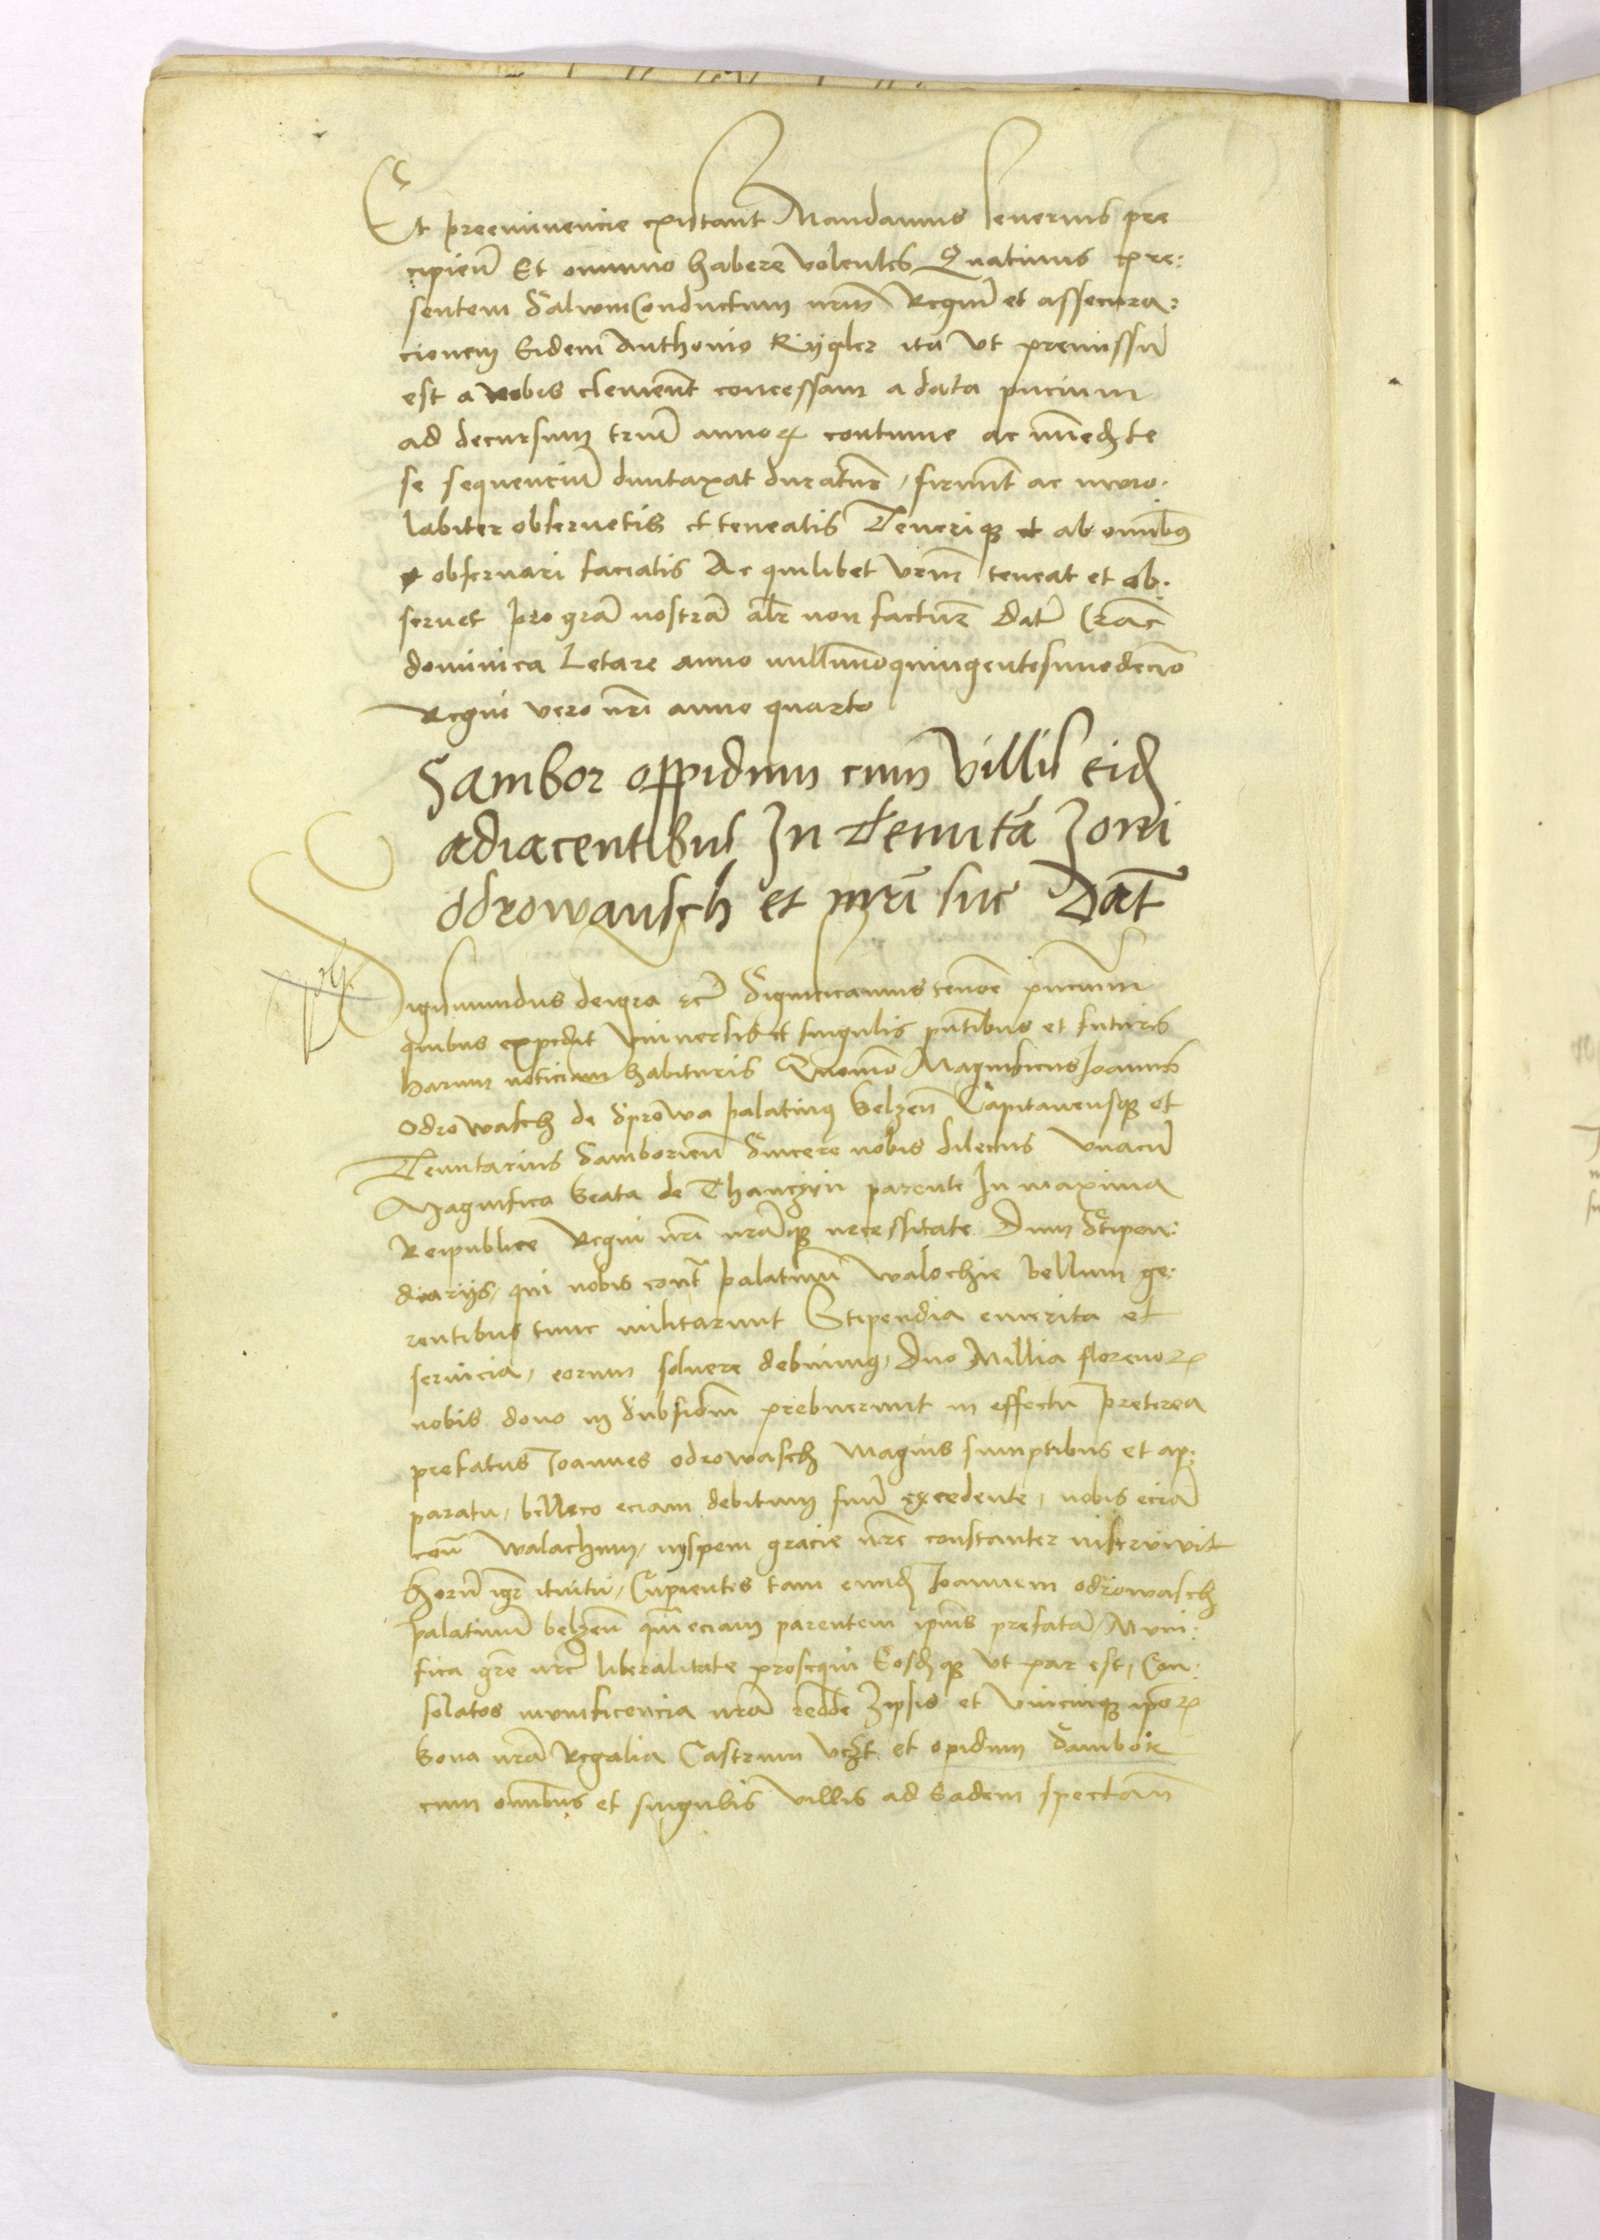 Et preeminencie existant Mandamus severius pre
cipien̄ Et omnino habere volentes Quatinus pre:
sentem SalvumConductum nrm̄ Regium̄ et assecura:
cionem Eidem Anthonio Rygler ita Ut premissū
est a nobis clement̄ concessam a data pn̄cium
ad decursum triū annoꝝ continue ac immediate
se sequenciū duntaxat duratur̄, firmit̄ ac invio:
labiter observetis et teneatis Tenerique et ab omnibꝰ
observari faciatis Ac quilibet vrm̄ teneat et ob:
servet pro grā nostrā alr̄ non factur̄ Datū Crac̄
dominica Letare anno millimoquingentesimodecīo
Regni vero nrī anno quarto
Sambor oppidum cum villis eid̄
adiacentibus In Tenutā Ioni
Odrowansch et mrī sue Dat̄
Sigismundus dei gra ec̄ Significamus tenōe pn̄cium
quibus expedit Universis et singulis pn̄tibus et futuris
harum noticiam habituris Quomō Magnificus Joannes
Odrowasch de Sprowa palatinꝰ Belzen̄ Capitaneusque et
Tenutarius Samborien̄ Sincere nobis dilectus Unacū
Magnifica Beata de Thanczyn parente In maxima
Reipublice Regni nrī nrāque necessitate Dum Stipen:
diariis, qui nobis cont̄ palatinū Walochie bellum ge:
rentibus tunc militarunt Stipendia emerita et
servicia, eorum solvere debuimꝰ, Duo Millia florenoꝝ
nobis dono in Subsidiū prebuerunt in effectu Preterea
prefatus Joannes Odrowasch magnis sumptibus et ap:
paratu, bellico eciam debitum suū excedente, nobis eciā
con̄ Walachum, in spem gracie nr̄e constanter inservivit
Horū igr̄ ituitu, Cupientes tam eund̄ Joannem Odrowasch
palatinū belzen̄ qm̄ eciam parentem ipius prefatā, Muni:
fica gr̄e nr̄e liberalitate prosequi Eosdque ut par est, Con:
solatos munificencia nrā redde Ipsis et Unicuique ipsoꝝ
Bona nrā Regalia Castrum vczt et opidum Sambor
cum omnibus et singulis villis ad Eadem spectan̄